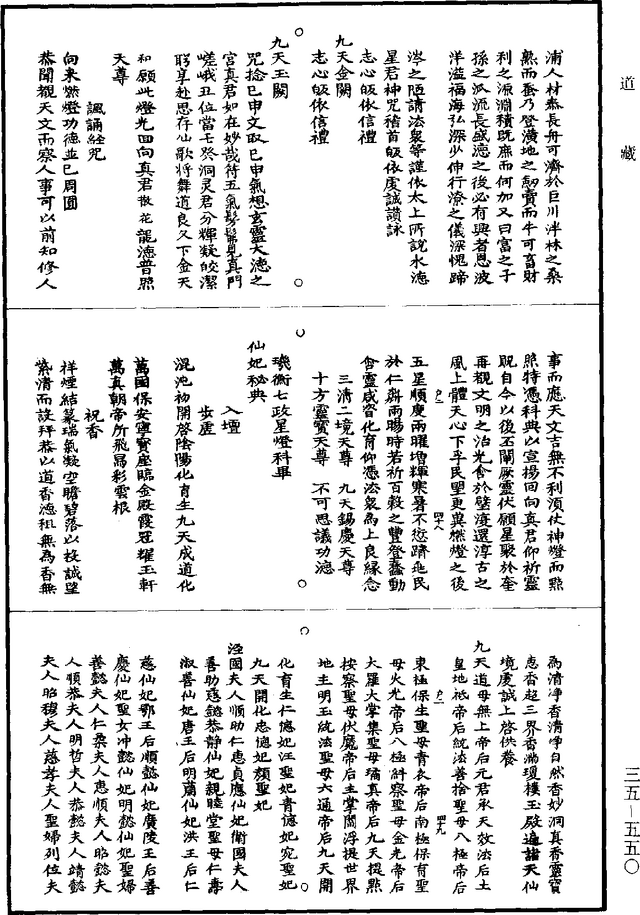 道藏
浦人材叅長舟可濟於巨川泮林之桑
熟而蚕乃登潢地之芻賣而牛可畜財
利之源淵積既庶而何加又曰富之子
孫之派流長盛德之後必有興者恩波
洋溢福海弘深少伸行潦之儀深愧蹄
涔之陋請法衆等謹依太上所說水德
星君神咒稽首皈依虔誠讚詠
志心皈依信禮
九天金闕
志心皈依信禮
九天玉闕
咒捻巳申文取巳申氣想玄靈大德之
宫真君如在妙哉符五氣髣髴見真門
嵯峨丑位當壬癸洞靈君分輝凝皎潔
躬享赴思存仙歌將舞道良久下金天
和願此燈光回向真君散花龍德普照
天尊
諷誦經咒
向來燃燈功德並已周圓
恭聞觀天文而察人事可以前知修人
事而應天文吉無不利須仗神燈而㸃
照特憑科典以宣揚回向真君仰祈靈
貺自今以後丕闡厥靈伏願星聚於奎
再觀文明之治光舍於壁復還淳古之
風上體天心下孚民望更冀燃燈之後
五星順度兩曜增輝寒暑不愆躋斯民
於仁壽雨暘時若祈百穀之豐登蠢動
含靈咸資化育仰憑法衆爲上良緣念
三清二境天尊 九天錫慶天尊
十方靈寶天尊 不可思議功德
璣衡七政星燈科畢
仙妃秘典
入壇
步虛
混沌初開啓陰陽化育生九天成道化
萬國保安寧寳座臨金殿霞冠耀玉軒
萬真朝帝所飛舄彩雲根
祝香
祥煙結篆瑞氣凝空瞻碧落以投誠望
紫清而設拜恭以道香德香無爲香無
爲清淨香清淨自然香妙洞真香靈寶
惠香超三界香滿瓊樓玉殿遍諸天仙
境虔誠上啓供養
九天道母無上帝后元君承天效法后土
皇地祇帝后統法善捨聖母八極帝后
東極保生聖母青衣帝后南極保育聖
母火光帝后八極糾察聖母金光帝后
大羅大掌集聖母璚真帝后九天提㸃
按察聖母伏魔帝后主掌閻浮提世界
地主明玉統法聖母六通帝后九天開
化育生仁德妃汪聖妃貴德妃宛聖妃
九天開化忠德妃顏聖妃
涇國夫人順助仁惠貞應仙妃衛國夫人
善助慈懿恭靜仙妃親睦堂聖母仁壽
淑善仙妃唐王后明蘭仙妃洪王后仁
慈仙妃鄂王后順懿仙妃廣陵王后善
慶仙妃聖女冲懿仙妃明懿仙妃聖婦
善懿夫人仁柔夫人惠順夫人昭懿夫
人順恭夫人明哲夫人恭懿夫人靖懿
夫人昭穆夫人慈孝夫人聖婦列位夫
三五－五五〇